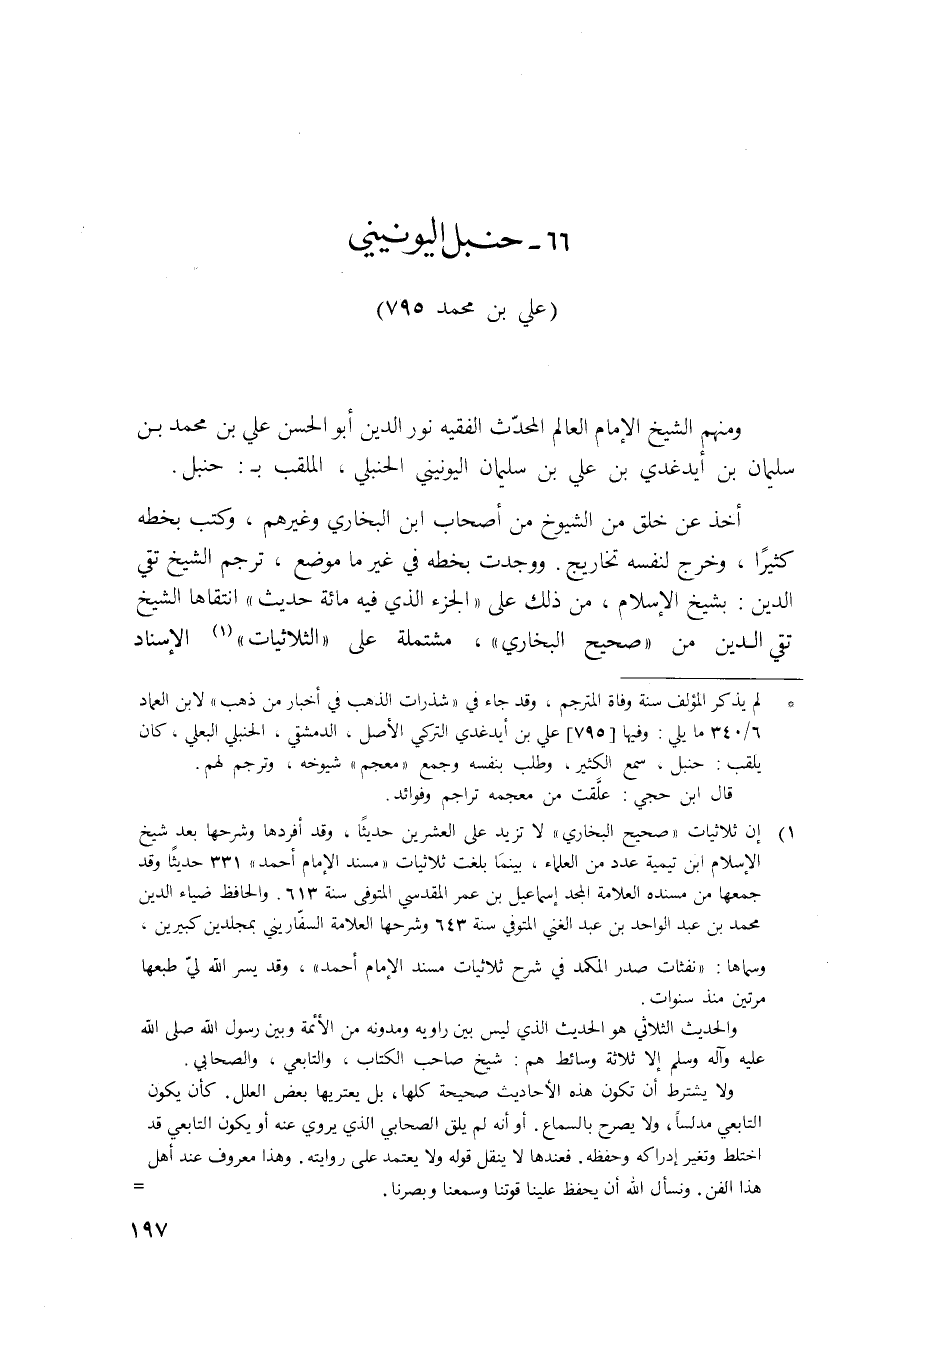 ٦٦ - حنبل اليونيني
(علي بن محمد ٧٩٥)
ومنهم الشيخ الإمام العالم المحدّث الفقيه نور الدين أبو الحسن علي بن محمد بن
سليمان بن أيدغدي بن علي بن سليمان اليونيني الحنبلي ، الملقب بـ : حنبل .
أخذ عن خلق من الشيوخ من أصحاب ابن البخاري وغيرهم ، وكتب بخطه
كثيرًا ، وخرج لنفسه تخاريج . ووجدت بخطه في غير ما موضع ، ترجم الشيخ تقي
الدين : بشيخ الإسلام ، من ذلك على «الجزء الذي فيه مائة حديث» انتقاها الشيخ
تقي الدين من «صحيح البخاري» ، مشتملة على «الثلاثيات»(١) الإسناد
* لم يذكر المؤلف سنة وفاة المترجم ، وقد جاء في «شذرات الذهب في أخبار من ذهب» لابن العماد
٣٤٠/٦ ما يلي : وفيها [٧٩٥] علي بن أيدغدي التركي الأصل ، الدمشقي ، الحنبلي البعلي ، كان
يلقب : حنبل ، سمع الكثير ، وطلب بنفسه وجمع «معجم» شيوخه ، وترجم لهم .
قال ابن حجي : علَّقت من معجمه تراجم وفوائد .
١) إن ثلاثيات «صحيح البخاري» لا تزيد على العشرين حديثًا ، وقد أفردها وشرحها بعد شيخ
الإسلام ابن تيمية عدد من العلماء ، بينما بلغت ثلاثيات «مسند الإمام أحمد» ٣٣١ حديثًا وقد
جمعها من مسنده العلامة المجد إسماعيل بن عمر المقدسي المتوفى سنة ٦١٣ . والحافظ ضياء الدين
محمد بن عبد الواحد بن عبد الغني المتوفي سنة ٦٤٣ وشرحها العلامة السفّاريني بمجلدين كبيرين ،
وسماها : «نفثات صدر المكمد في شرح ثلاثيات مسند الإمام أحمد» ، وقد يسر الله ليّ طبعها
مرتين منذ سنوات .
والحديث الثلاثي هو الحديث الذي ليس بين راويه ومدونه من الأئمة وبين رسول الله صلى الله
عليه وآله وسلم إلا ثلاثة وسائط هم : شيخ صاحب الكتاب ، والتابعي ، والصحابي .
ولا يشترط أن تكون هذه الأحاديث صحيحة كلها، بل يعتريها بعض العلل . كأن يكون
التابعي مدلساً، ولا يصرح بالسماع . أو أنه لم يلق الصحابي الذي يروي عنه أو يكون التابعي قد
اختلط وتغير إدراكه وحفظه . فعندها لا ينقل قوله ولا يعتمد على روايته . وهذا معروف عند أهل
هذا الفن . ونسأل الله أن يحفظ علينا قوتنا وسمعنا وبصرنا . =
١٩٧